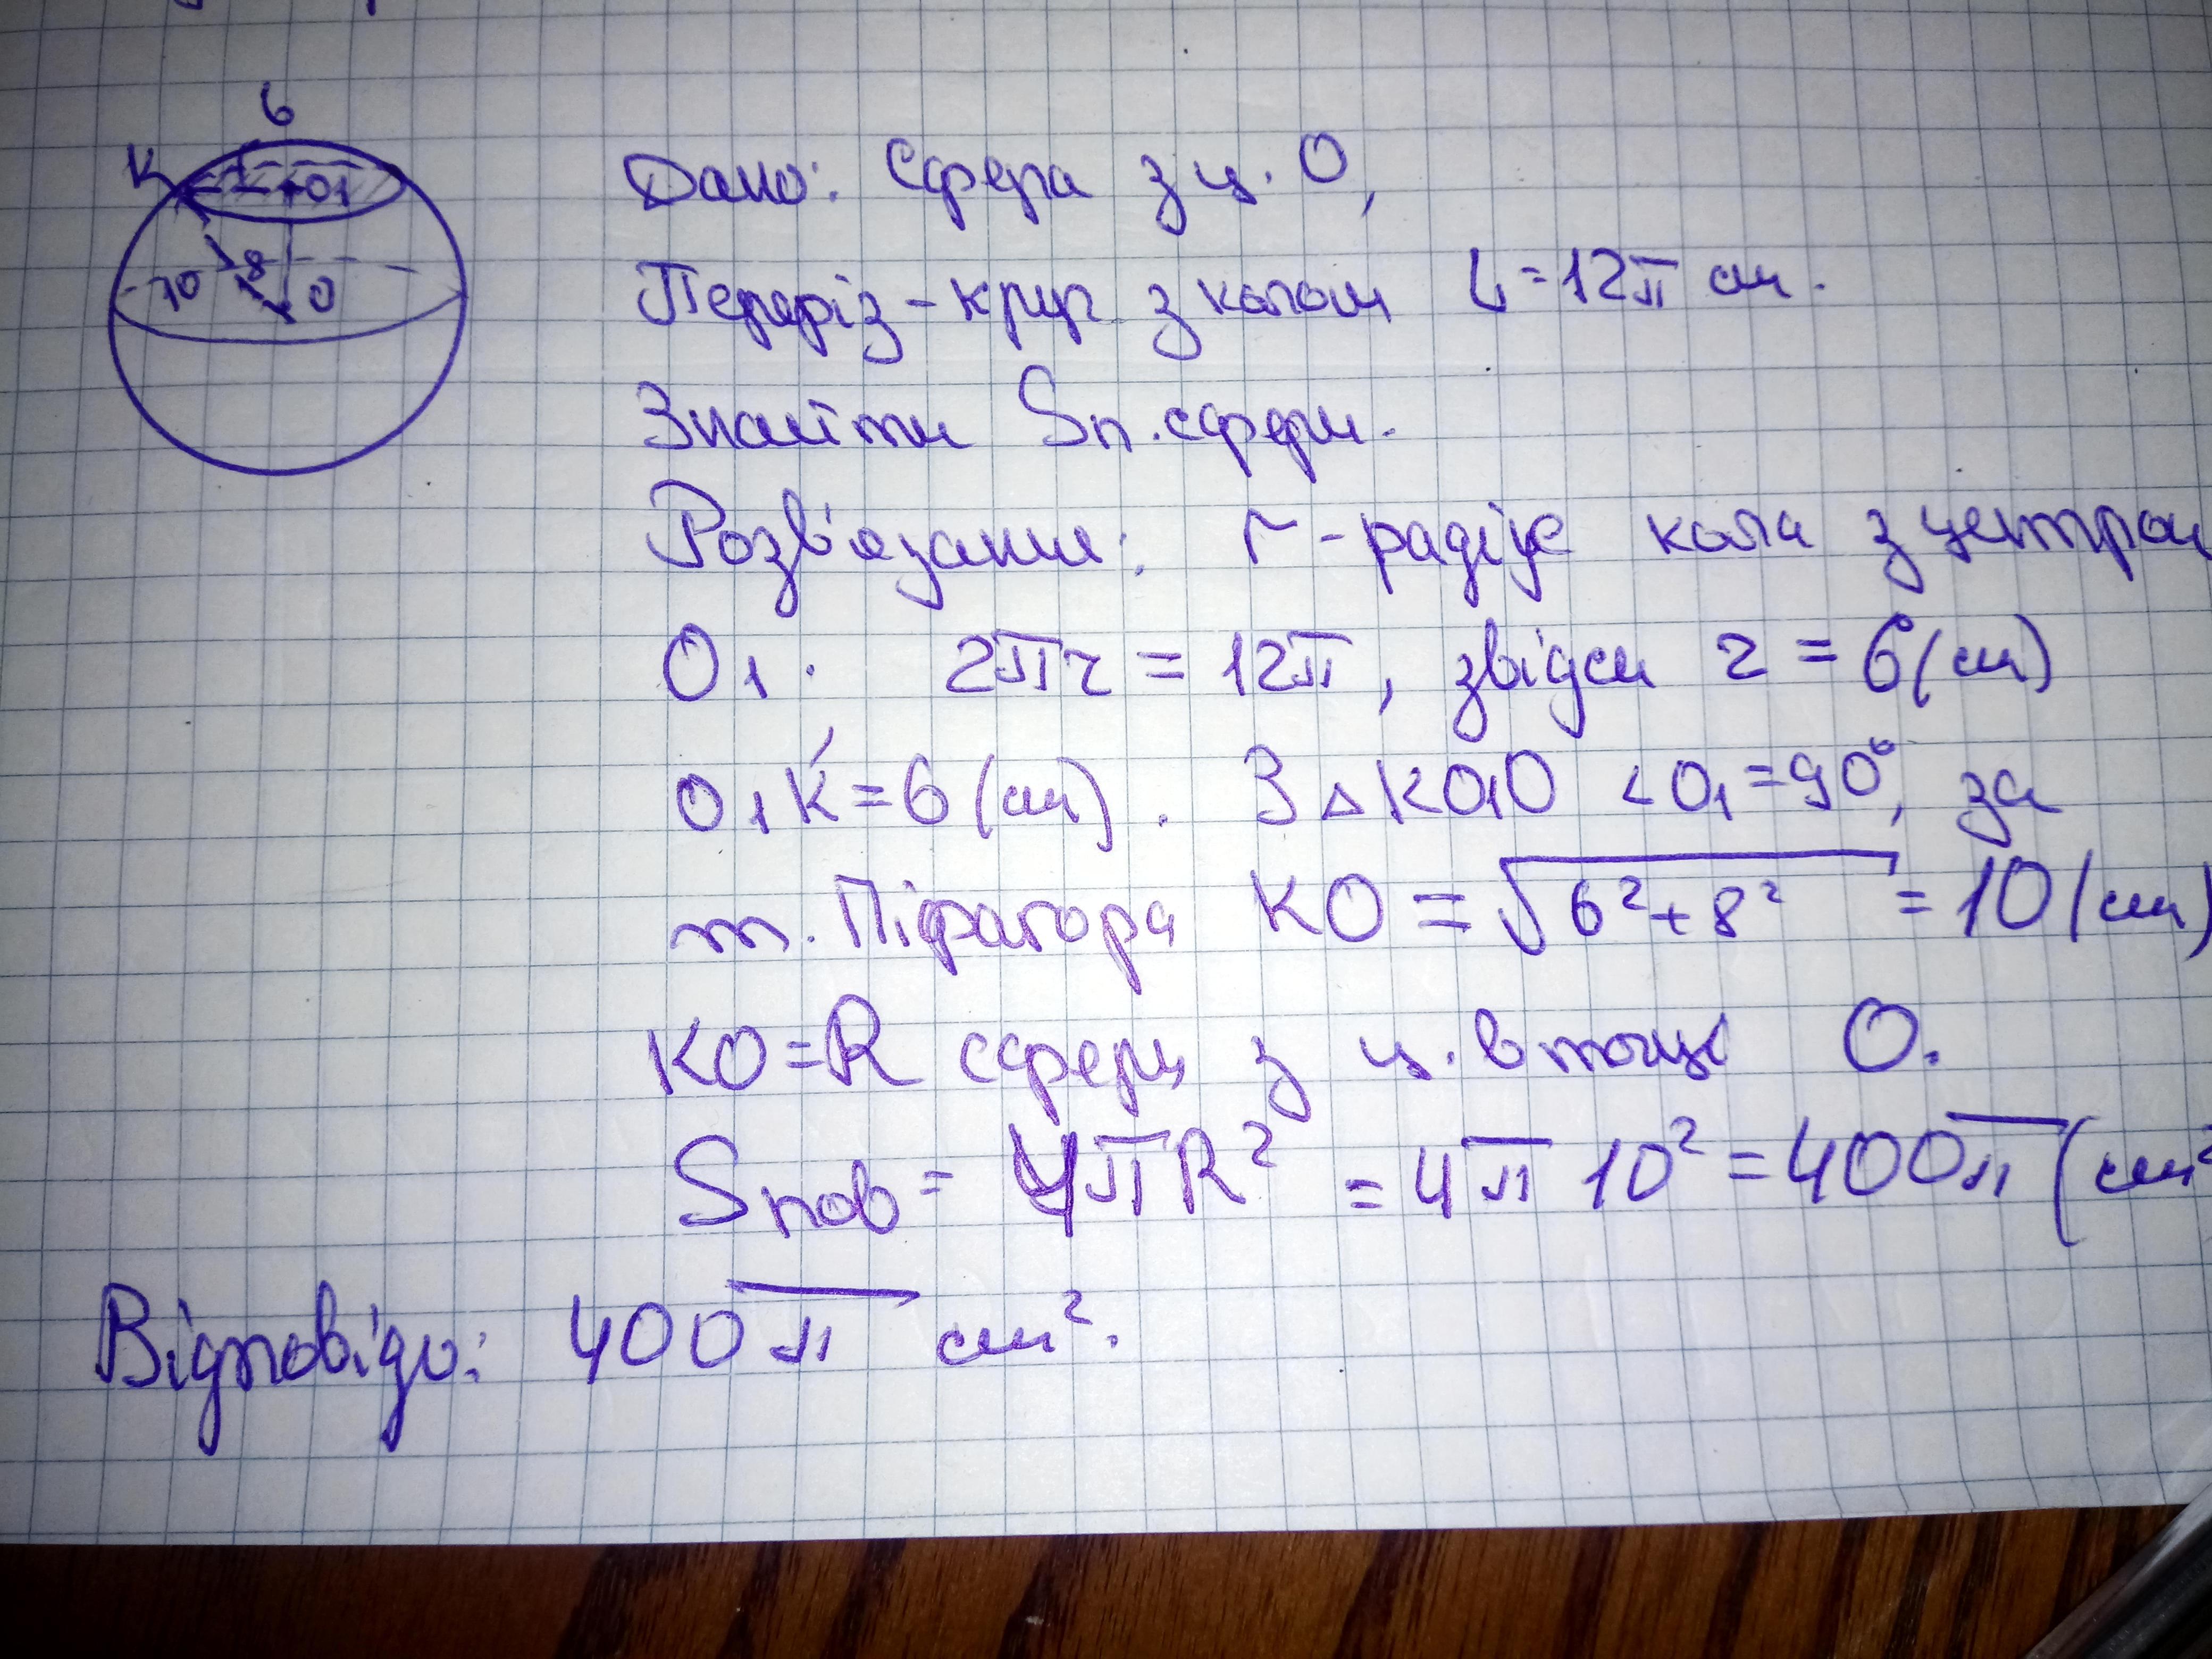 6
K
O1
10
8
O
Дано: Сфера з ц. O,
Переріз - круг з колом L = 12π см.
Знайти Sп. сфери.
Розв'язання: r - радіус кола з центром
O1. 2πr = 12π, звідси r = 6 (см)
O1K = 6 (см). З △KO1O <O1 = 90°, за
т. Піфагора KO = √6²+8² = 10 (см)
KO = R сфери з ц. в точці O.
Sпов = 4πR² = 4π 10² = 400π (см²
Відповідь: 400π см².